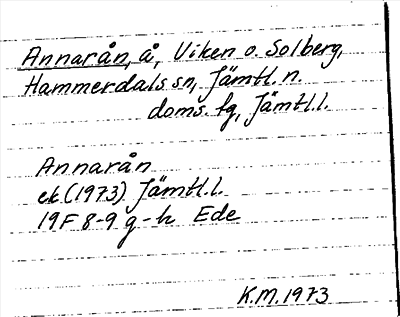 Annarån, å, Viken o. Solberg,
Hammerdals sn, Jämtl. n.
doms. fg, Jämtl. l.
Annarån
ek (1973) Jämtl. l.
19F 8-9 g-h Ede
K.M. 1973